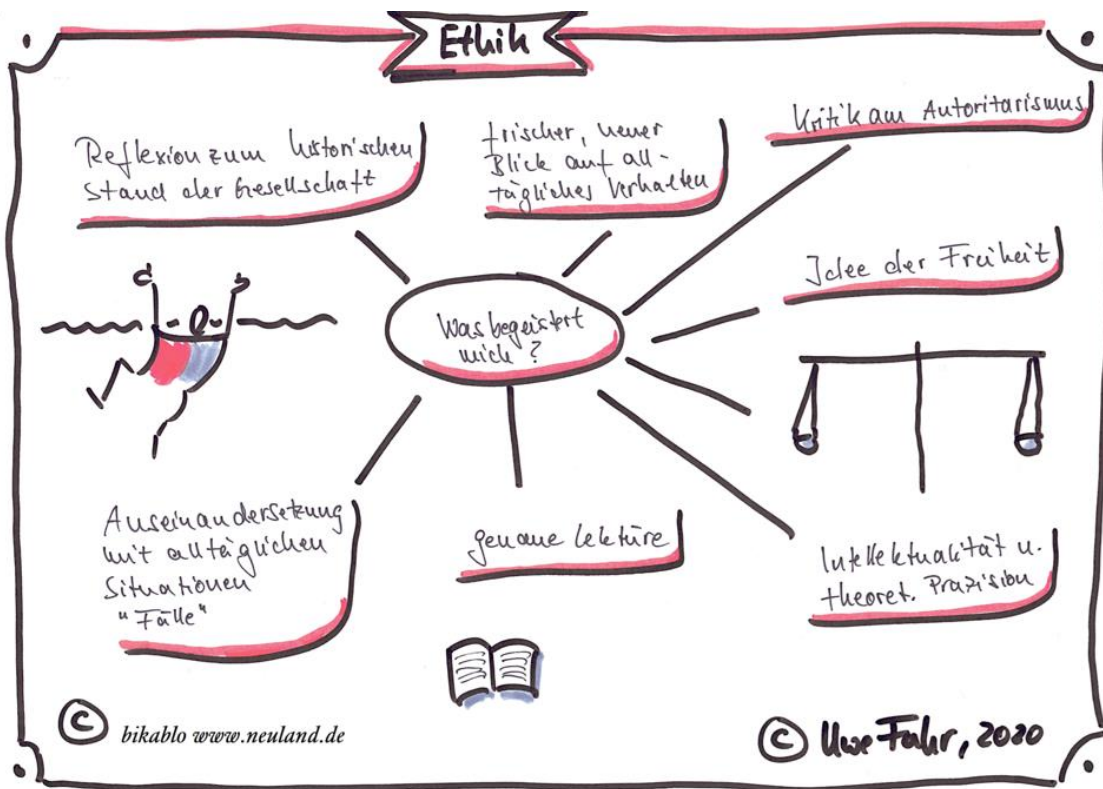 Ethik
Reflexion zum historischen
Stand der Gesellschaft
frischer, neuer
Blick auf all-
tägliches Verhalten
Kritik am Autoritarismus
Idee der Freiheit
Was begeistert
mich?
Auseinandersetzung
mit alltäglichen
Situationen
"Fälle"
genaue Lektüre
Intellektualität u.
theoret. Präzision
© bikablo www.neuland.de
© Uwe Fahr, 2020